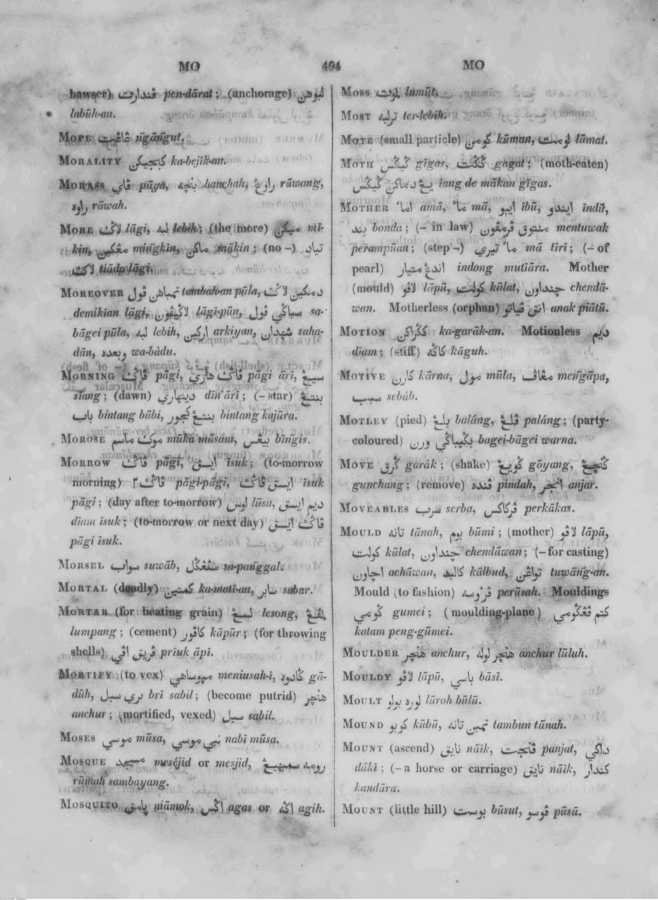 MO 494 MO
hawser) قندارت pen-dārat; (anchorage) لبوهن
labūh-an.
MOPE nġanġut.
MORALITY كبجيكن ka-bejīk-an.
MORASS ڤاي pāya, بنچه banchah, راوڠ rāwang,
راوه rāwah.
MORE لاݢ lāgi, لبه lebih; (the more) مڠكين
kin, مڠكين mungkin, ماكن mākin; (no –) تياد
لاݢ tiāda lāgi.
MOREOVER تمباهن ڤول tambah-an pūla, دمكين لاݢ
demikian lāgi, لاݢيڤون lāgi-pūn, سباݢي ڤول sa-
bāgei pūla, لبه lebih, اركين arkiyan, شهدان saha-
dān, وبعده wa-bādu.
MORNING ڤاݢ pāgi, ڤاݢ هاري pāgi āri, سيڠ
siang; (dawn) دينهاري din'āri; (– star) بنتڠ
باب bintang bābi, بنتڠ كجور bintang kajūra.
MOROSE موك ماسم mūka māsam, بيڠس bīngis.
MORROW ڤاݢ pāgi, ايسق īsuk; (to-morrow
morning) pāgi-pāgi, ڤاݢ ايسق īsuk
pāgi; (day after to-morrow) لوس lūsa, ديم ايسق
diam īsuk; (to-morrow or next day) ڤاݢ ايسق
pāgi īsuk.
MORSEL سواب suwāb, سڤڠݢل sa-panggal.
MORTAL (deadly) كماتين ka-mati-an, سابر sabar.
MORTAR (for beating grain) لسڠ lesong, لمڤڠ
lumpang; (cement) كاڤور kāpūr; (for throwing
shells) ڤريق اڤي priuk āpi.
MORTIFY (to vex) meniusah-i, ݢادوه gā-
dūh, بري سبل bri sabil; (become putrid) هنچر
anchur; (mortified, vexed) سبل sabil.
MOSES موسي mūsa, نبي موسي nabi mūsa.
MOSQUE مسجد mesējid or mesjid, رومه سمبهيڠ
rūmah sambayang.
MOSQUITO ڽامق niāmok, اݢس agas or اݢه agih.
MOSS لومت lūmut.
MOST ترلبه ter-lebih.
MOTE (small particle) كومن kūman, لومت lūmat.
MOTH ݢيݢس gīgas, ݢݢت gagat; (moth-eaten)
يڠ دماكن ݢيݢس iang de mākan gīgas.
MOTHER اما amā, ما mā, ايبو ibū, ايندو indū,
بند bonda; (– in law) منتوق ڤرمڤون mentuwak
perampūan; (step –) ما تيري mā tīri; (– of
pearl) اندڠ متيار indong mutiāra. Mother
(mould) لاڤو lāpū, كولت kūlat, چنداون chendā-
wan. Motherless (orphan) انق ڤياتو anak piātū.
MOTION ݢݢراكن ka-garāk-an. Motionless ديم
diam; (stiff) كاݢه kāguh.
MOTIVE كارن kārna, مول mūla, مڠاڤ mengāpa,
سبب sebāb.
MOTLEY (pied) بلڠ balāng, ڤلڠ palāng; (party-
coloured) بݢيباݢي ورن bagei-bāgei warna.
MOVE ݢرق garāk; (shake) ݢويڠ gōyang, ݢنچڠ
gunchang; (remove) ڤنده pindah, انجر anjar.
MOVEABLES سرب serba, ڤركاكس perkākas.
MOULD تانه tānah, بوم būmi; (mother) لاڤو lāpū,
كولت kūlat, چنداون chendāwan; (– for casting)
اچاون achāwan, كالبد kālbud, تواڠن tuwāng-an.
Mould (to fashion) ڤروسه perūsah. Mouldings
ݢومي gumei; (moulding-plane) كتم ڤڠݢومي
katam peng-gūmei.
MOULDER هنچر anchur, هنچر لوله anchur lūluh.
MOULDY لاڤو lāpū, باسي bāsi.
MOULT لوره بولو lūroh būlū.
MOUND كوبو kūbū, تمبن تانه tambun tānah.
MOUNT (ascend) نايق nāik, ڤنجت panjat, داكي
dāki; (– a horse or carriage) نايق nāik, كندار
kandāra.
MOUNT (little hill) بوست būsut, ڤوسو pūsū.